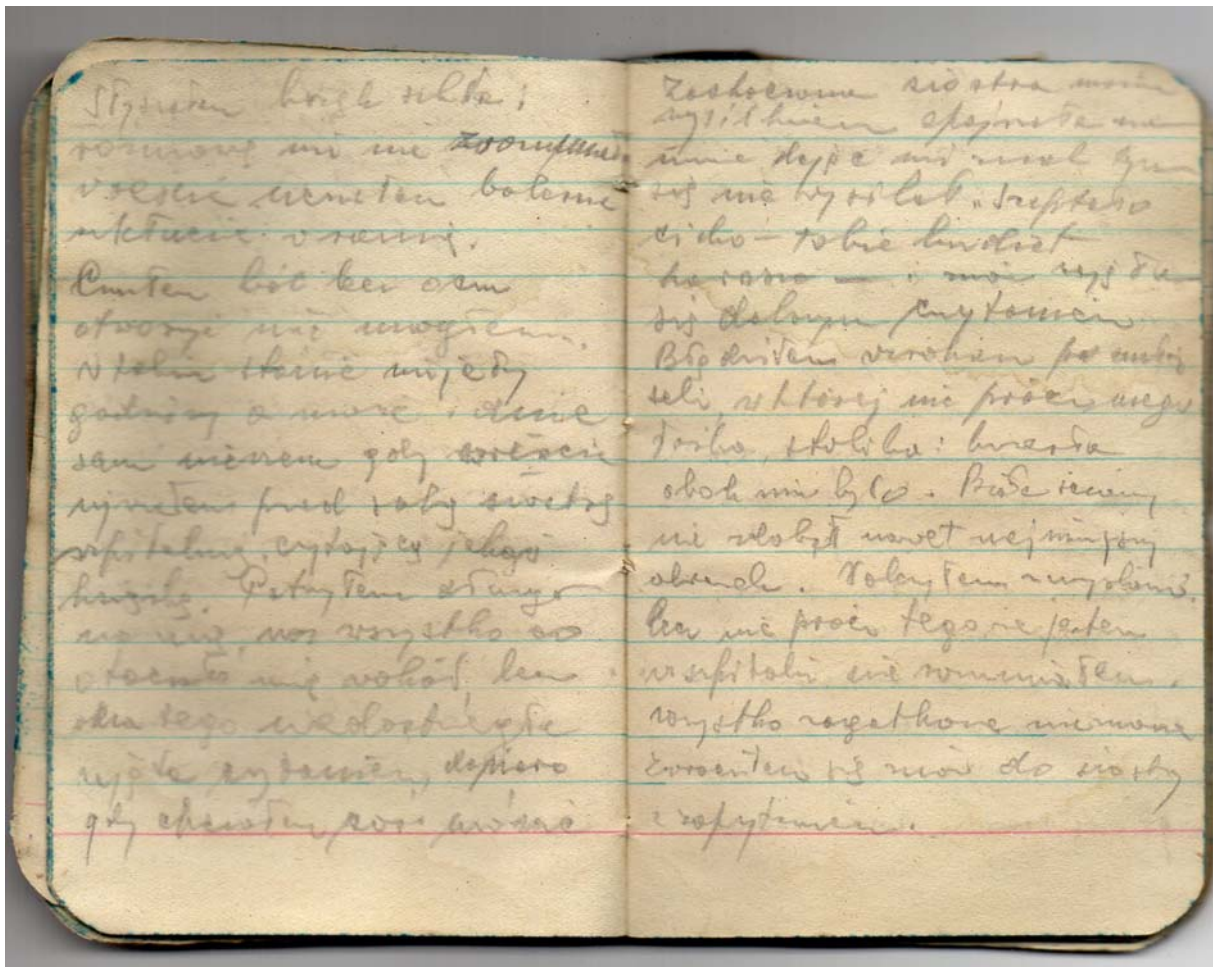 Słyszałem brzęk szkła i
rozmowę mi nie
ucułem bolesne
ukłucie w ramię.
Czułem ból lecz oczu
otworzyć nie mogłem.
W takim stanie mijały
godziny a może i dnie
sam niewiem gdy wreście
ujrzałem przed sobą siostrę
szpitalną czytającą jakąś
książkę. Patrzyłem długo
na nią, na wszystko co
otaczało mię wokół, lecz
ona tego niedostrzegła
zajęta czytaniem, dopiero
gdy chciałem coś
siostra moim
wysiłkiem spojrzała na
mnie dając mi znak bym
się nie wysilał. Szeptała
cicho – tobie
– i znów zajęła
się dalszym czytaniem
Błądziłem wzrokiem po małej
sali, w której nic prócz mego
łóżka, stolika i krzesła
obok nie było. Białe ściany
nie zdobił nawet najmniejszy
obrazek.
lecz nic prócz tego, że jestem
w szpitalu nie rozumiałem.
wszystko
Zwróciłem się znów do siostry
z zapytaniem.